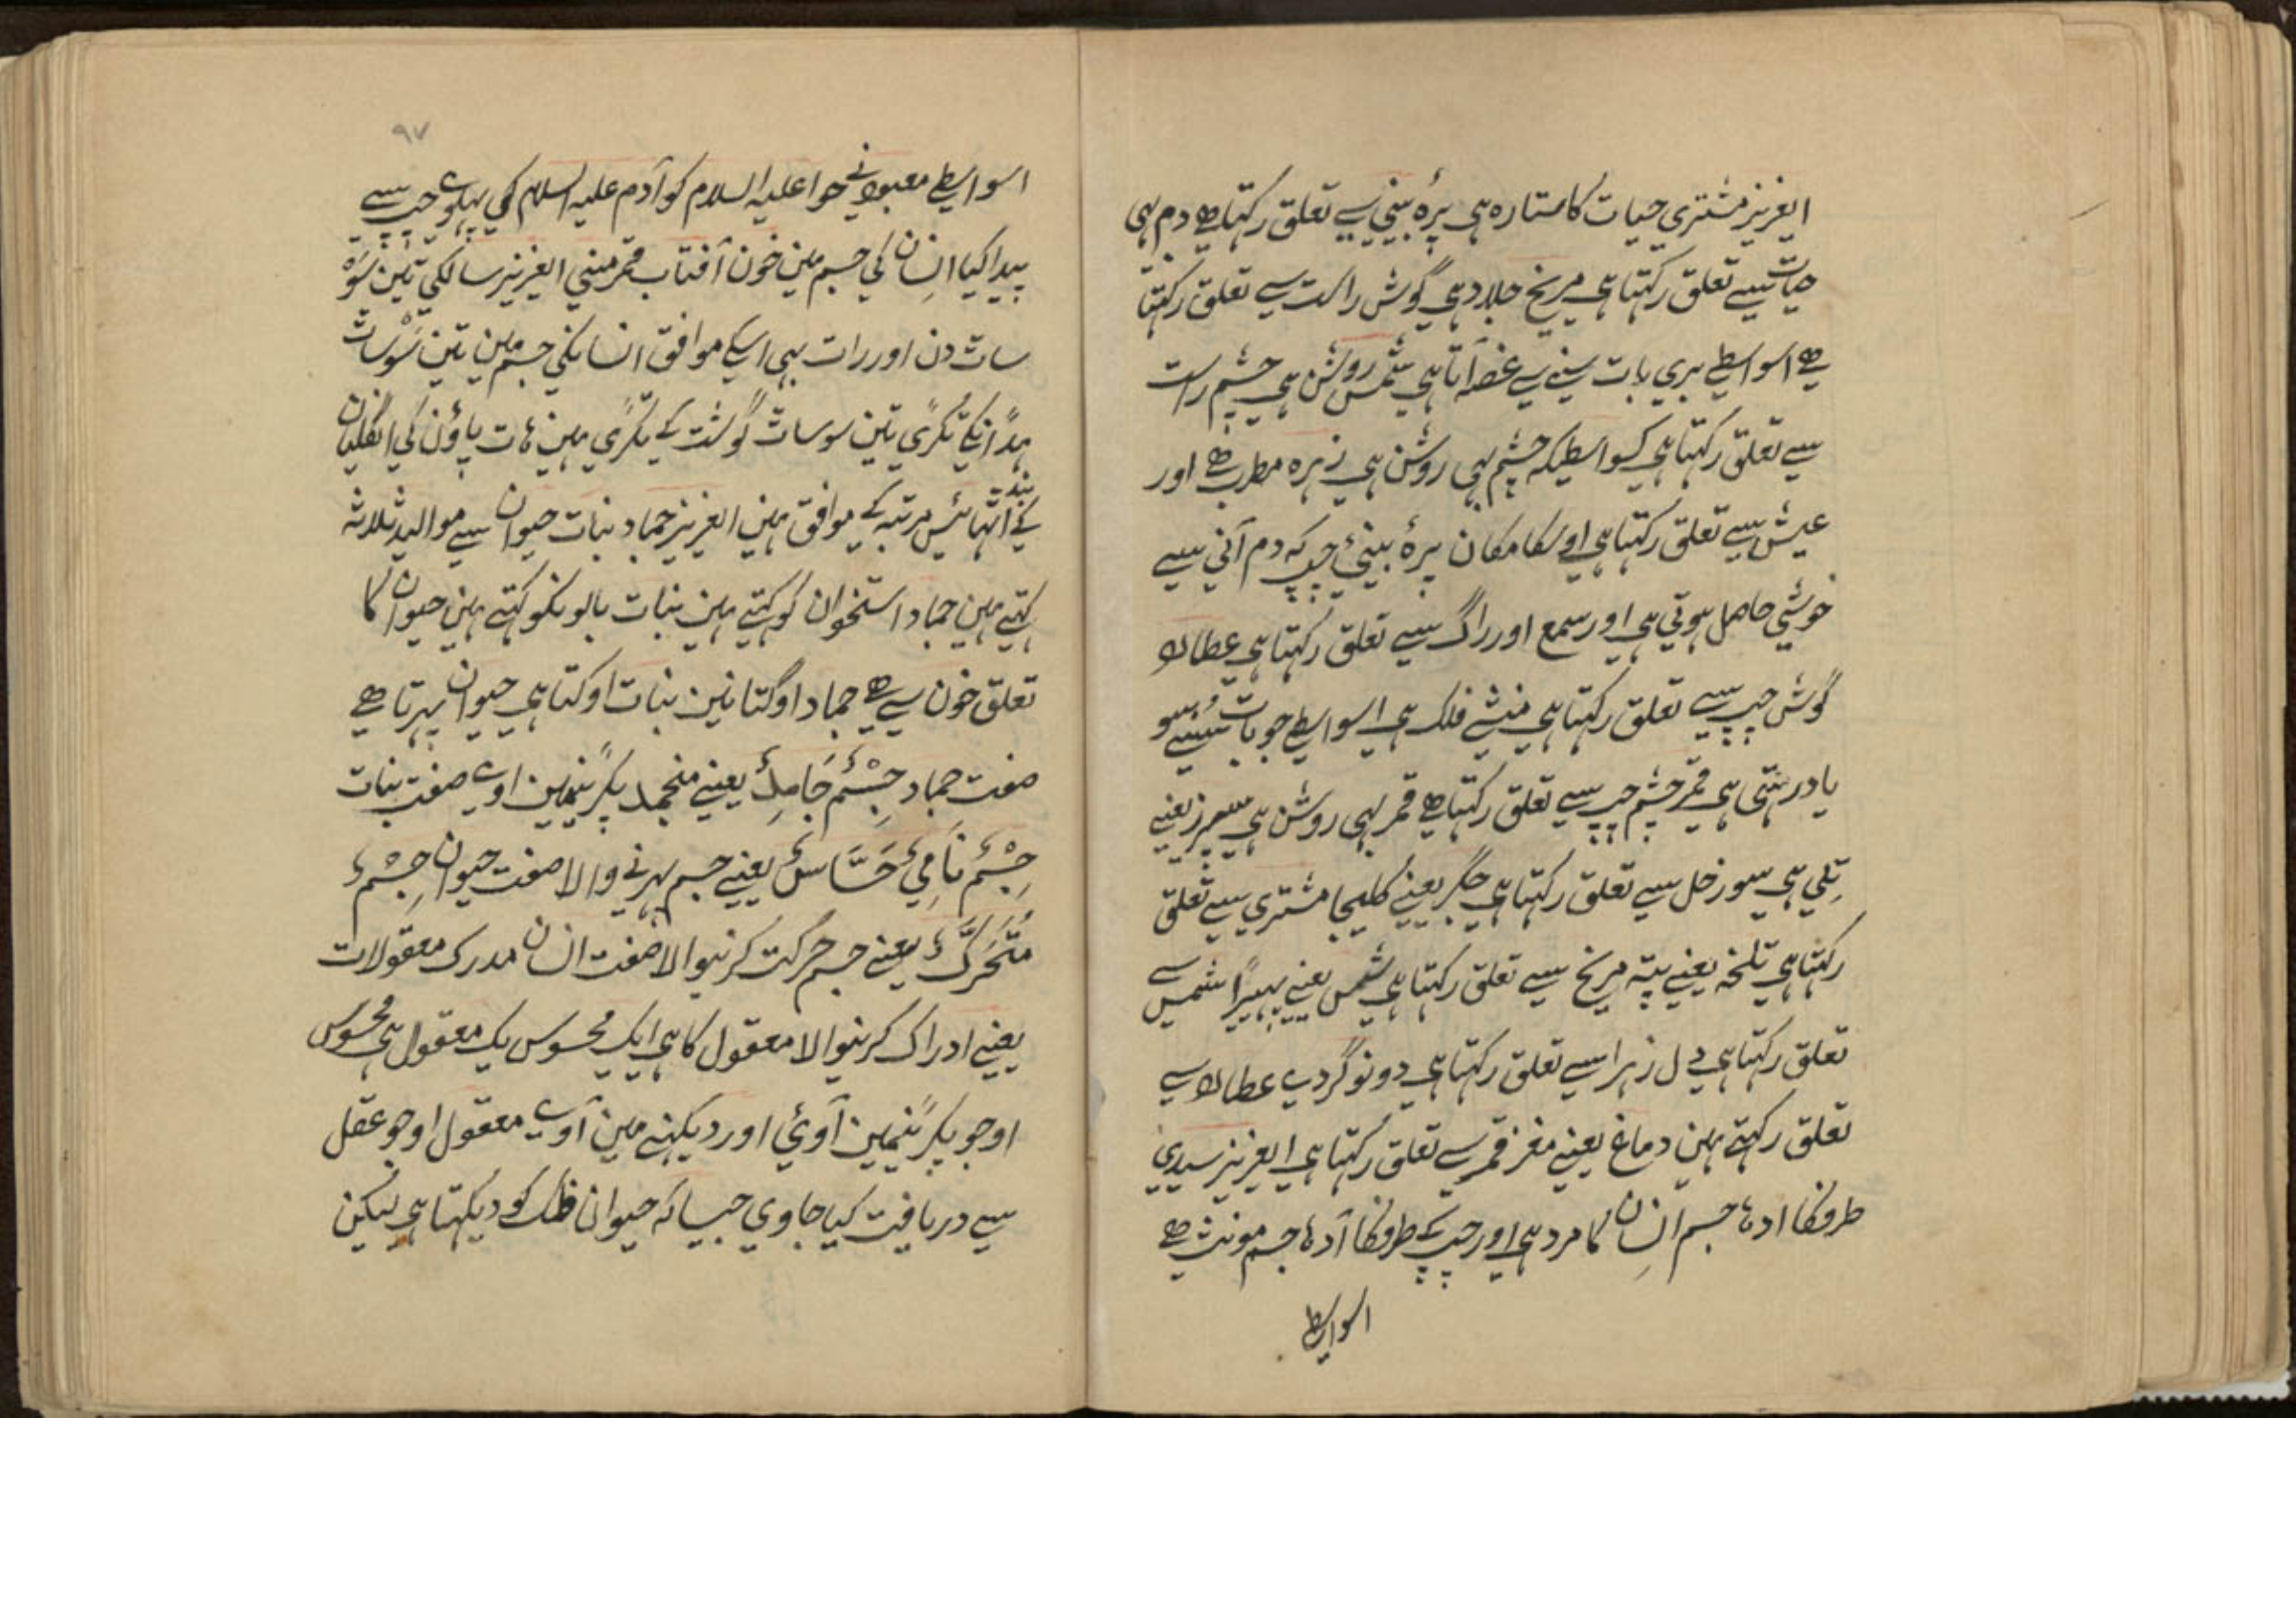 ایعزیز مشتری حیات کا ستارہ ہی پرۂ بینی سے تعلق رکہتا ہے دم ہی
حیات سے تعلق رکہتا ہی مریخ جلاد ہی گوش راست سے تعلق رکہتا
ہے اسواسطے بری بات سننے سے غصہ آتا ہی شمس روشن ہی چشم راست
سے تعلق رکہتا ہی کسواسطیکہ چشم بہی روشن ہی زہرہ مطرب ہے اور
عیش سے تعلق رکہتا ہی اوسکا مکان پرۂ بینیٔ چپ کہ دم آنی سے
خوشی حاصل ہوتی ہی اور سمع اور راگ سے تعلق رکہتا ہی عطارد
گوش چپ سے تعلق رکہتا ہی منشے فلک ہی اسواسطے جو بات سُنیسو
یاد رہتی ہی قمر چشم چپ سے تعلق رکہتا ہے قمر بہی روشن ہی سپرز یعنے
تِلّی ہی سو زحل سے تعلق رکہتا ہی جگر یعنے کلیجا مشتری سے تعلق
رکہتا ہی تلخہ یعنے پتہ مریخ سے تعلق رکہتا ہی شش یعنے پہیپڑا شمس سے
تعلق رکہتا ہی دل زہرا سے تعلق رکہتا ہی دونو گردے عطارد سے
تعلق رکہتے ہین دماغ یعنے مغز قمر سے تعلق رکہتا ہی ایعزیز سیدی
طرفکا ادہا جسم انسان کا مرد ہی اور چپ کے طرفکا آدہا جسم مونث ہے
اسواسطے
۹۷
اسواسطے معبود نے حوا علیہ السلام کو آدم علیہ السلام کی پہلوے چپ سے
پیدا کیا انسان کی جسم مین خون آفتاب قمر منی ایعزیز سالکی تین سَوْ
سات دن اور رات ہی اسکے موافق انسانکی جسم مین تین سَوْ سات
ہڈانکے ٹکری تین سو سات گوشت کے ٹکری ہین ہات پاؤن کی انگلیان
کے بند اٹہائیس مرتبہ کے موافق ہین ایعزیز جماد نبات حیوان سے موالید ثلاثہ
کہتے ہین جماد استخوان کو کہتے ہین نبات بالونکو کہتے ہین حیوان کا
تعلق خون سے ہے جماد اوگتا نین نبات اوکتا ہی حیوان پہرتا ہے
صفت جماد جِسْمٌ جَامِدٌ یعنے منجمد پکڑنیمین اوے صفت نبات
جِسْمٌ نَامِیٌ حَسَّاسٌ یعنے جسم پہرنے والا صفت حیوان جِسْمٌ
مُتَحَرِّکٌ یعنے جسم حرکت کرنیوالا صفت انسان مدرک معقولات
یعنے ادراک کرنیوالا معقول کا ہی ایک محسوس یک معقول ہی محسوس
او جو پکڑنیمین آوئے اور دیکہنے مین آوے معقول او جو عقل
سے دریافت کیا جاوی جیسا کہ حیوان فلک کو دیکہتا ہی لیکن